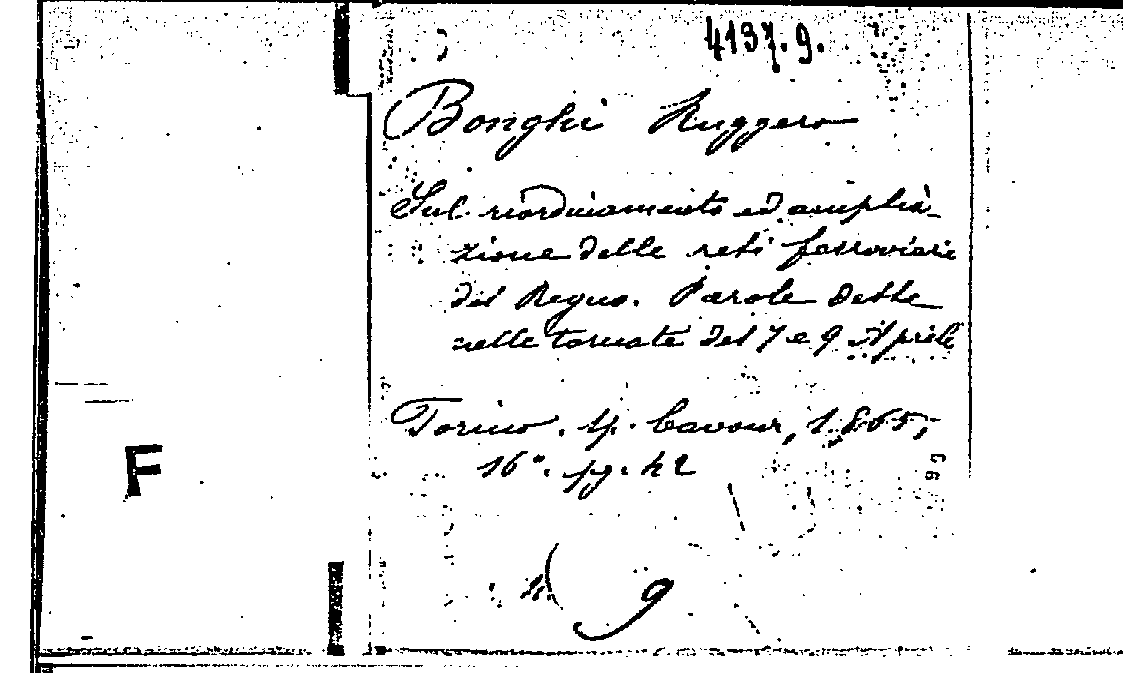 4137.9.
Bonghi Ruggero
Sul riordinamento ed amplia-
zione delle reti ferroviarie
del Regno. Parole dette
nelle tornate del 7 e 9 Aprile
Torino. tip. Cavour, 1865,
16°. pg. 42
F
9